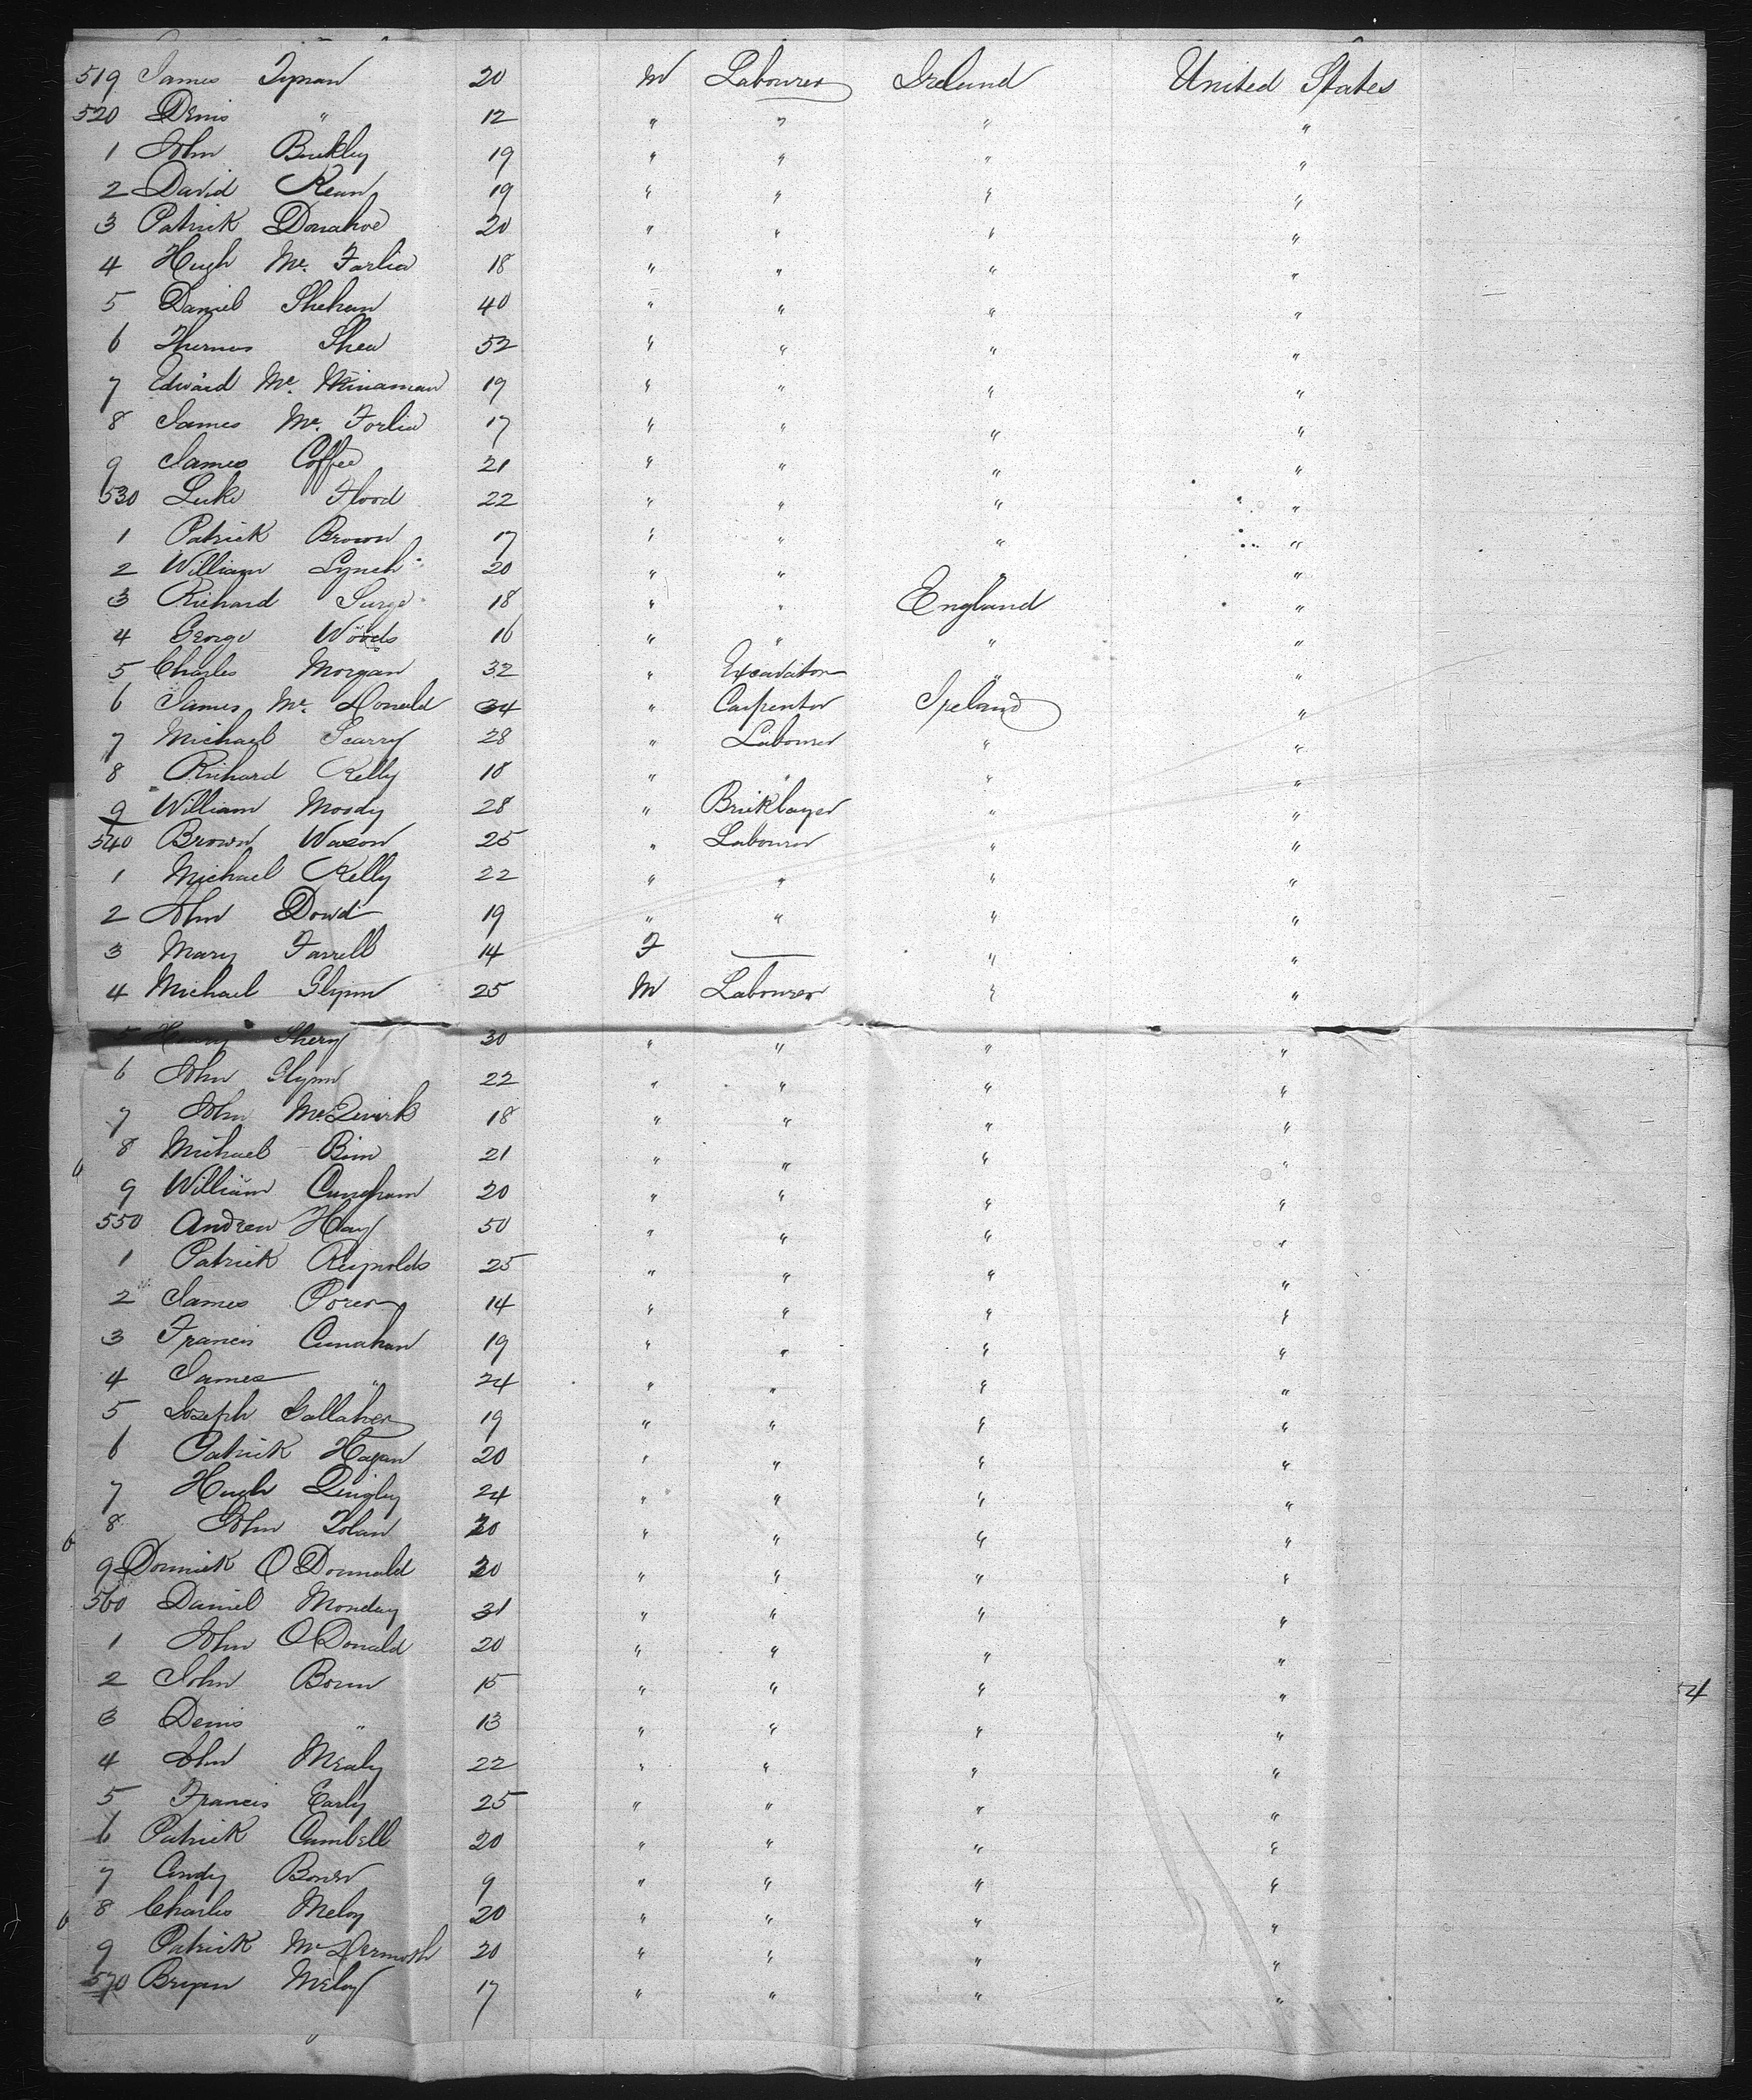 519 James Tynan 20 M Labourer Ireland United States
520 Denis " 12 " " " "
1 John Buckley 19 " " " "
2 David Kean 19 " " " "
3 Patrick Donahoe 20 " " " "
4 Hugh Mc. Farlin 18 " " " "
5 Daniel Shehan 40 " " " "
6 Thomas Shea 52 " " " "
7 Edward Mc. Minaman 19 " " " "
8 James Mc. Forlin 17 " " " "
9 James Coffee 21 " " " "
530 Luke Flood 22 " " " "
1 Patrick Brown 17 " " " "
2 William Lynch 20 " " " "
3 Richard Surge 18 " " England "
4 George Woods 16 " " " "
5 Charles Morgan 32 " Excavator " "
6 James Mc. Donald 34 " Carpenter Ireland "
7 Michael Scarry 28 " Labourer " "
8 Richard Kelly 18 " " " "
9 William Moody 28 " Bricklayer " "
540 Brown Wason 25 " Labourer " "
1 Michael Kelly 22 " " " "
2 John Dowd 19 " " " "
3 Mary Farrell 14 F — " "
4 Michael Glynn 25 M Labourer " "
5 Henry Shery 30 " " " "
6 John Glynn 22 " " " "
7 John Mc Quirk 18 " " " "
8 Michael Birn 21 " " " "
9 William Cungham 20 " " " "
550 Andrew Hay 50 " " " "
1 Patrick Reynolds 25 " " " "
2 James 14 " " " "
3 Francis Cunahan 19 " " " "
4 James " 24 " " " "
5 Joseph Gallaher 19 " " " "
6 Patrick Hagan 20 " " " "
7 Hugh Quigley 24 " " " "
8 John Tolan 20 " " " "
9 Dominick O Donnald 20 " " " "
560 Daniel Monday 31 " " " "
1 John O Donald 20 " " " "
2 John Boun 15 " " " "
3 Denis " 13 " " " "
4 John Mealy 22 " " " "
5 Francis Early 25 " " " "
6 Patrick Cambell 20 " " " "
7 Andy Boner 9 " " " "
8 Charles Meloy 20 " " " "
9 Patrick Mc Dermoth 20 " " " "
570 Bryan Meloy 17 " " " "